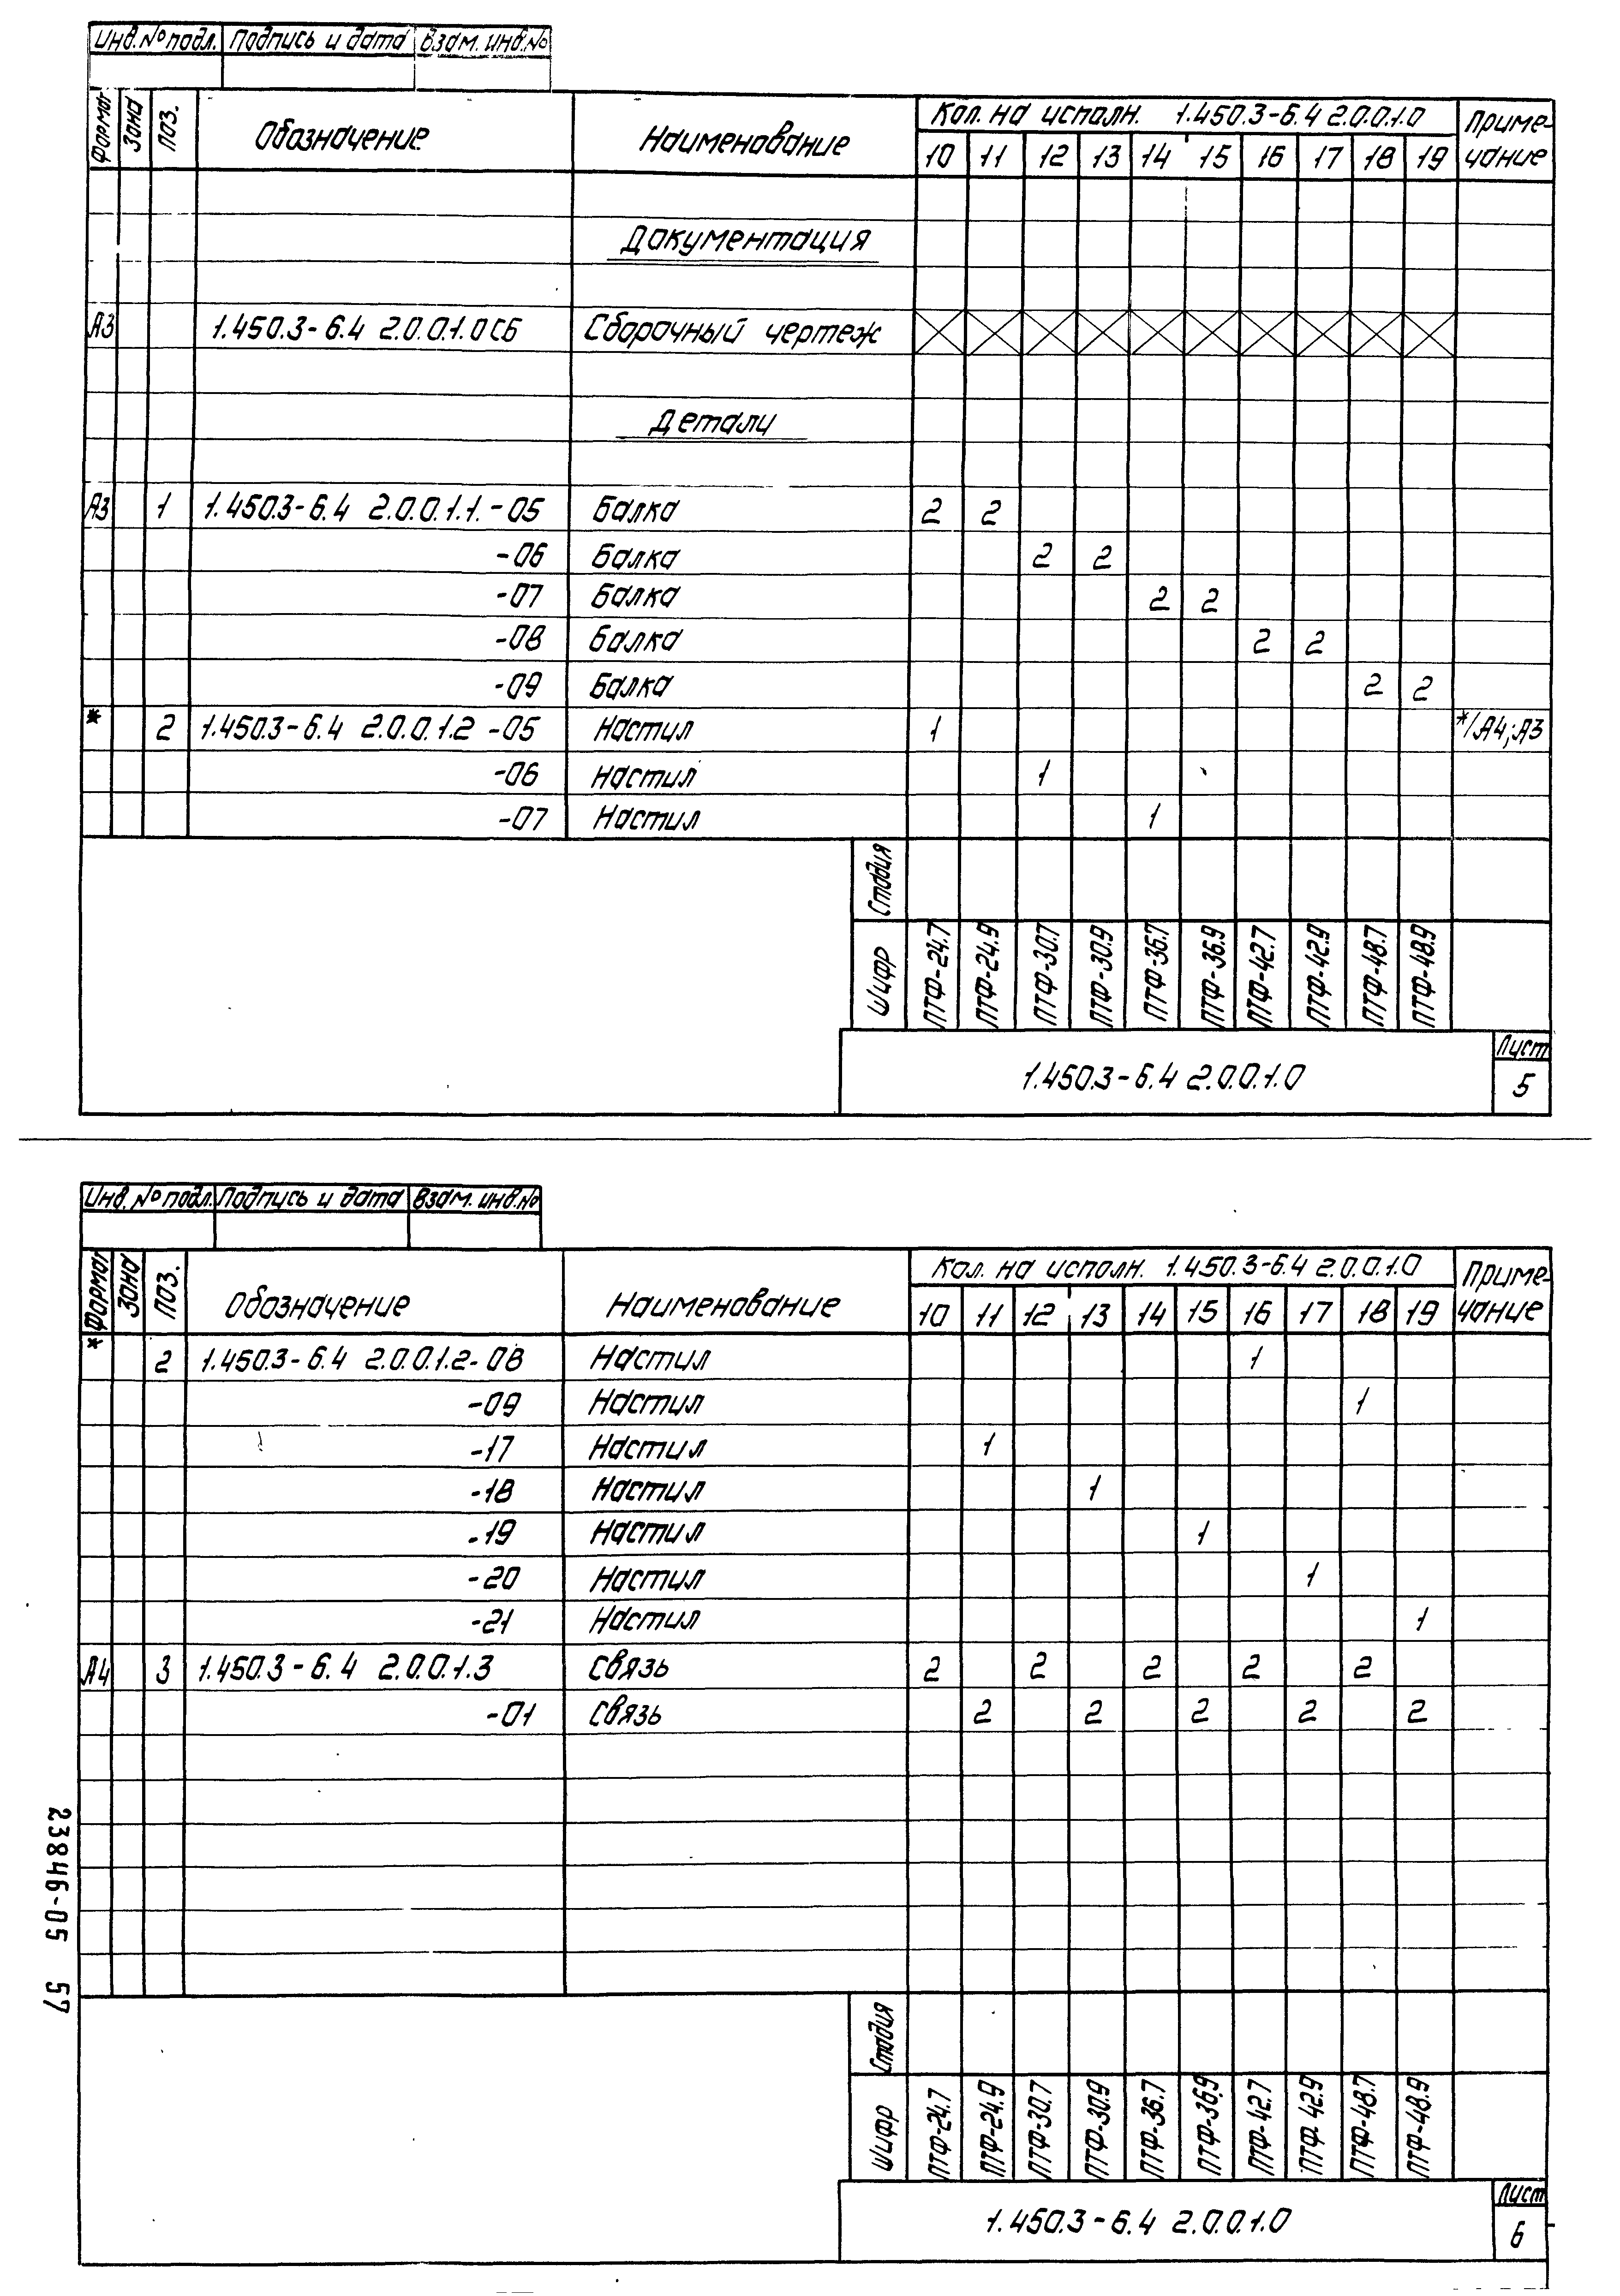 Инв. № подл. Подпись и дата Взам. инв. №
Формат Зона Поз. Обозначение Наименование Кол. на исполн. 1.450.3-6.4 2.0.0.1.0 Приме-
10 11 12 13 14 15 16 17 18 19 чание
Документация
А3 1.450.3-6.4 2.0.0.1.0СБ Сборочный чертеж
Детали
А3 1 1.450.3-6.4 2.0.0.1.1.-05 Балка 2 2
-06 Балка 2 2
-07 Балка 2 2
-08 Балка 2 2
-09 Балка 2 2
* 2 1.450.3-6.4 2.0.0.1.2 -05 Настил 1 */А4;А3
-06 Настил 1
-07 Настил 1
Стадия
Шифр ПТФ-24.7 ПТФ-24.9 ПТФ-30.7 ПТФ-30.9 ПТФ-36.7 ПТФ-36.9 ПТФ-42.7 ПТФ-42.9 ПТФ-48.7 ПТФ-48.9
1.450.3-6.4 2.0.0.1.0 Лист
5
Инв. № подл. Подпись и дата Взам. инв. №
Формат Зона Поз. Обозначение Наименование Кол. на исполн. 1.450.3-6.4 2.0.0.1.0 Приме-
10 11 12 13 14 15 16 17 18 19 чание
* 2 1.450.3-6.4 2.0.0.1.2-08 Настил 1
-09 Настил 1
-17 Настил 1
-18 Настил 1
-19 Настил 1
-20 Настил 1
-21 Настил 1
А4 3 1.450.3-6.4 2.0.0.1.3 Связь 2 2 2 2 2
-01 Связь 2 2 2 2 2
Стадия
Шифр ПТФ-24.7 ПТФ-24.9 ПТФ-30.7 ПТФ-30.9 ПТФ-36.7 ПТФ-36.9 ПТФ-42.7 ПТФ 42.9 ПТФ-48.7 ПТФ-48.9
1.450.3-6.4 2.0.0.1.0 Лист
6
23846-05 57